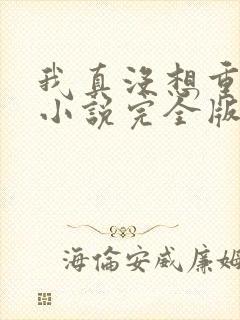 我真沒想重
小說完全版
海倫安威廉姆